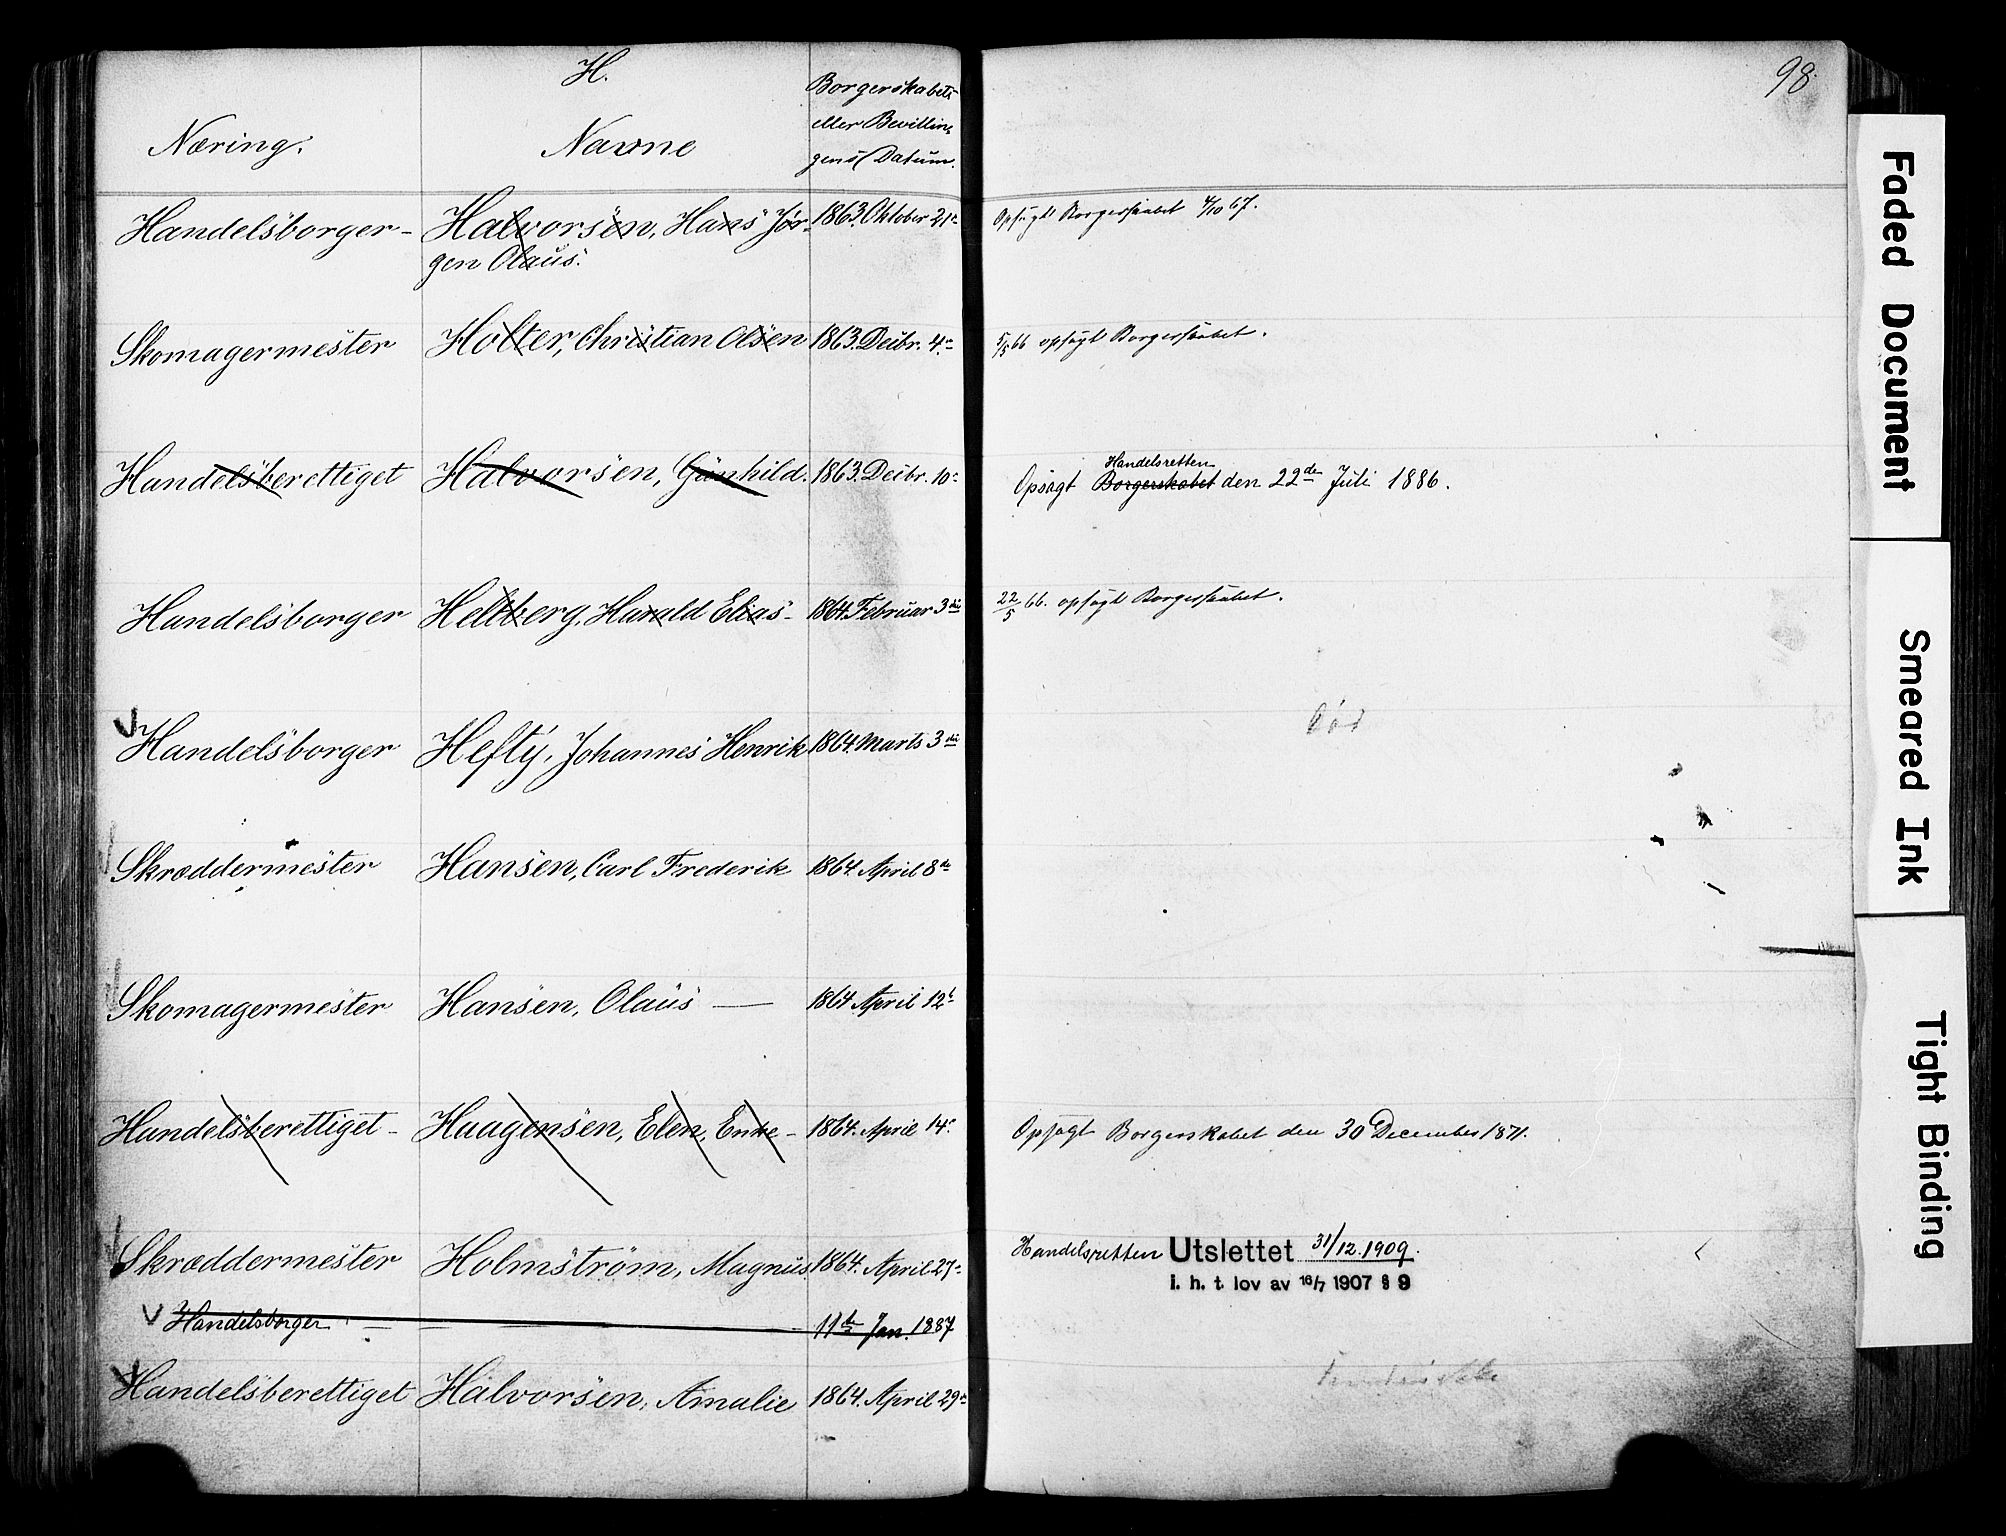 H.
98
Næring.
Navne
Borgerskabets
eller Bevillin-
gens Datum.
Handelsborger- Halvorsen, Hans Jør- 1863. Oktober 21de Opsagt Borgerskabet 4/10 67.
gen Olaus.
Skomagermester Holter, Christian Olsen 1863. Decbr. 4de 5/5 66 opsagt Borgerskabet.
Handelsberettiget Halvorsen, Gunhild. 1863. Decbr. 10de Opsagt Borgerskabet den 22de Juli 1886.
Handelsretten
Handelsborger Heltberg, Harald Elias- 1864. Februar 3die 22/5 66. opsagt Borgerskabet.
Død
V Handelsborger Hefty, Johannes Henrik 1864. Marts 3die
Skræddermester Hansen, Carl Frederik 1864 April 8de
Skomagermester Hansen, Olaus — 1864 April 12te
Handelsberettiget- Haagensen, Elen, Enke- 1864. April 14de Opsagt Borgerskabet den 30 December 1871.
Skræddermester Holmstrøm, Magnus 1864. April 27de Handelsretten Utslettet 31/12.1909.
i. h. t. lov av 16/7 1907 § 9
V Handelsborger — — 11te Jan. 1887
V Handelsberettiget Halvorsen, Amalie 1864. April 29de
Faded Document
Smeared Ink
Tight Binding